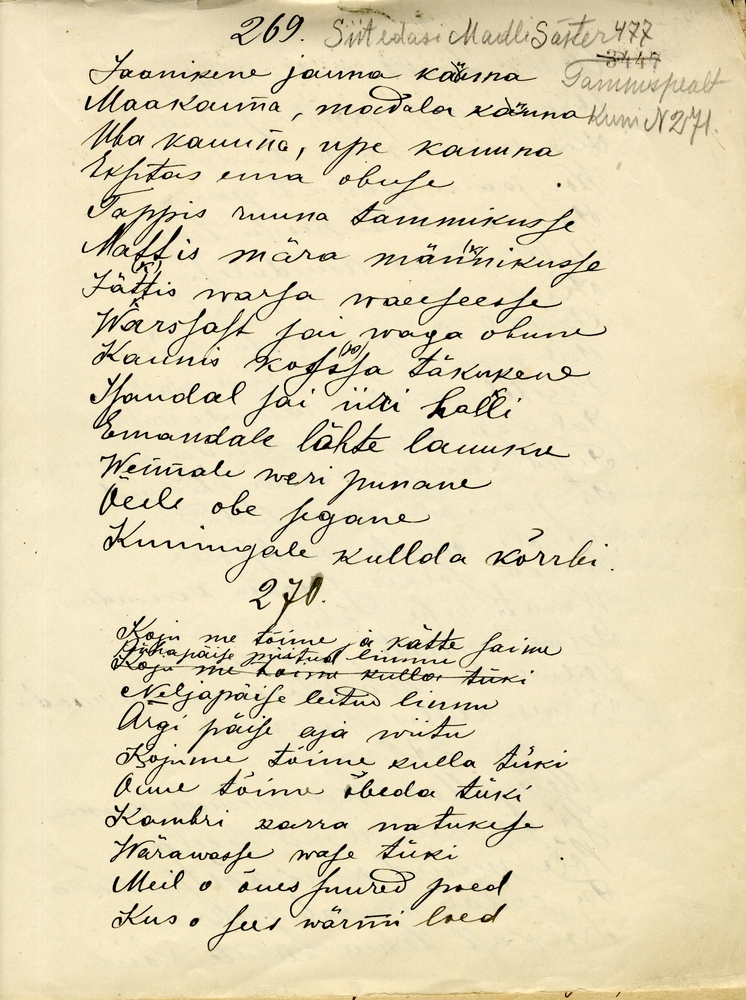 269. Siit edasi Madli Säster 477
3447
Tammispealt
kuni N 271.
Jaanikene jauna käuna
Maakauna, madala käuna
Uba kauna, upe kauuna
Eksitas ema obuse
Tappis ruuna tammikusse
Mattis mära männikusse
Jättis warsa waeseesse
Warssast sai waga obune
Kaunis kossja täkukene
Isandal sai iiri halli
Emandale lähte lauuku
Weimale weri punane
Õele obe segane
Kuningale kullda kõrrbi.
270.
Koju me tõime ja kätte saime
Pühapäise püitud linnu
Koju me toime kullar tüki
Neljapäise leitud linnu
Ärgi päise aja wiitu
Koju me tõime kulla tüki
Õuue tõime õbeda tüki
Kambri karra natukese
Wärawasse wase tüki
Meil o õues suured poed
Kus o sees wärmi loed